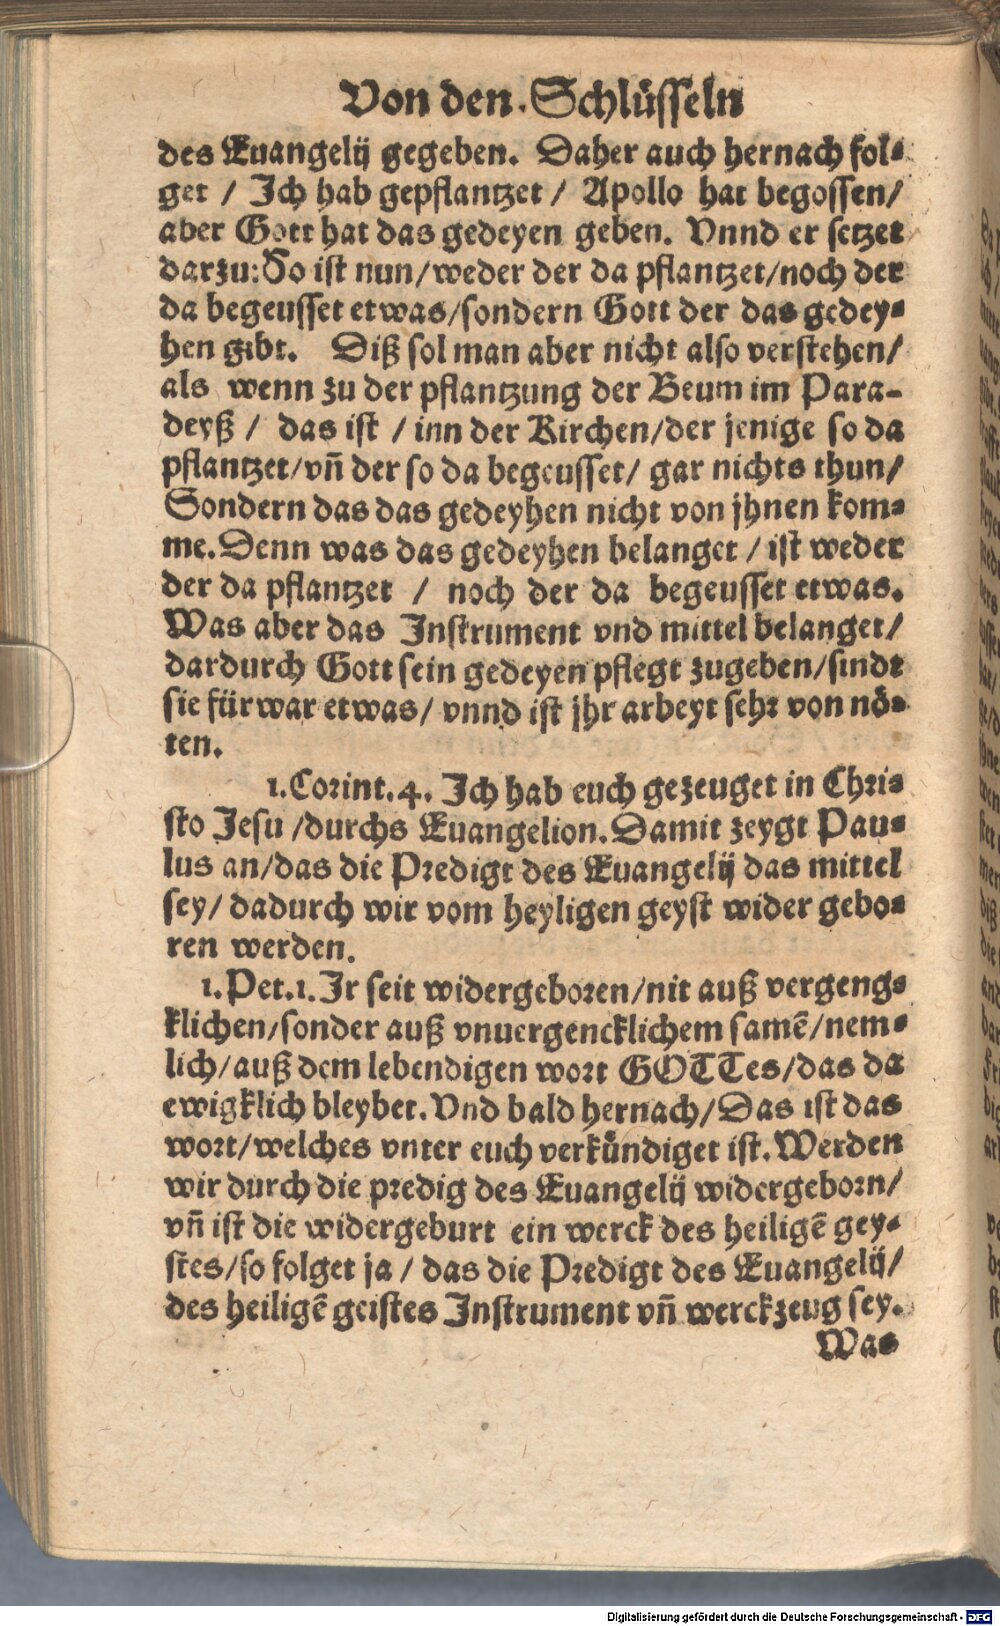 Von den Schlüsseln
des Euangelij gegeben. Daher auch hernach fol-
get / Ich hab gepflantzet / Apollo hat begossen/
aber Gott hat das gedeyen geben. Vnnd er setzet
darzu: So ist nun/weder der da pflantzet/noch der
da begeusset etwas/sondern Gott der das gedey-
hen gibt. Diß sol man aber nicht also verstehen/
als wenn zu der pflantzung der Beum im Para-
deyß / das ist / inn der Kirchen/der jenige so da
pflantzet/vn̄ der so da begeusset/ gar nichts thun/
Sondern das das gedeyhen nicht von jhnen kom-
me. Denn was das gedeyhen belanget / ist weder
der da pflantzet / noch der da begeusset etwas.
Was aber das Instrument vnd mittel belanget/
dardurch Gott sein gedeyen pflegt zugeben/sindt
sie fürwar etwas/ vnnd ist jhr arbeyt sehr von nö-
ten.
1. Corint. 4. Ich hab euch gezeuget in Chri-
sto Jesu /durchs Euangelion. Damit zeygt Pau-
lus an/das die Predigt des Euangelij das mittel
sey/ dadurch wir vom heyligen geyst wider gebo-
ren werden.
1. Pet. 1. Ir seit widergeboren/nit auß vergeng-
klichen/sonder auß vnuergencklichem samē/nem-
lich/auß dem lebendigen wort GOTTes/das da
ewigklich bleybet. Vnd bald hernach/Das ist das
wort/welches vnter euch verkündiget ist. Werden
wir durch die predig des Euangelij widergeborn/
vn̄ ist die widergeburt ein werck des heiligē gey-
stes/so folget ja / das die Predigt des Euangelij/
des heiligē geistes Instrument vn̄ werckzeug sey.
Was
Digitalisierung gefördert durch die Deutsche Forschungsgemeinschaft - DFG